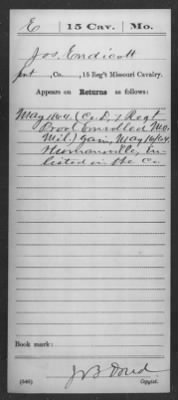 E 15 Cav. Mo.
Jos. Endicott
Pvt, Co. , 15 Reg't Missouri Cavalry.
Appears on Returns as follows:
May 1864. (Co. D, 7 Regt
Prov. Enrolled Mo.
Mil.) Gain, May 16/64
Humansville, En-
listed in the Co.
Book mark:
J B Doud
(546) Copyist.